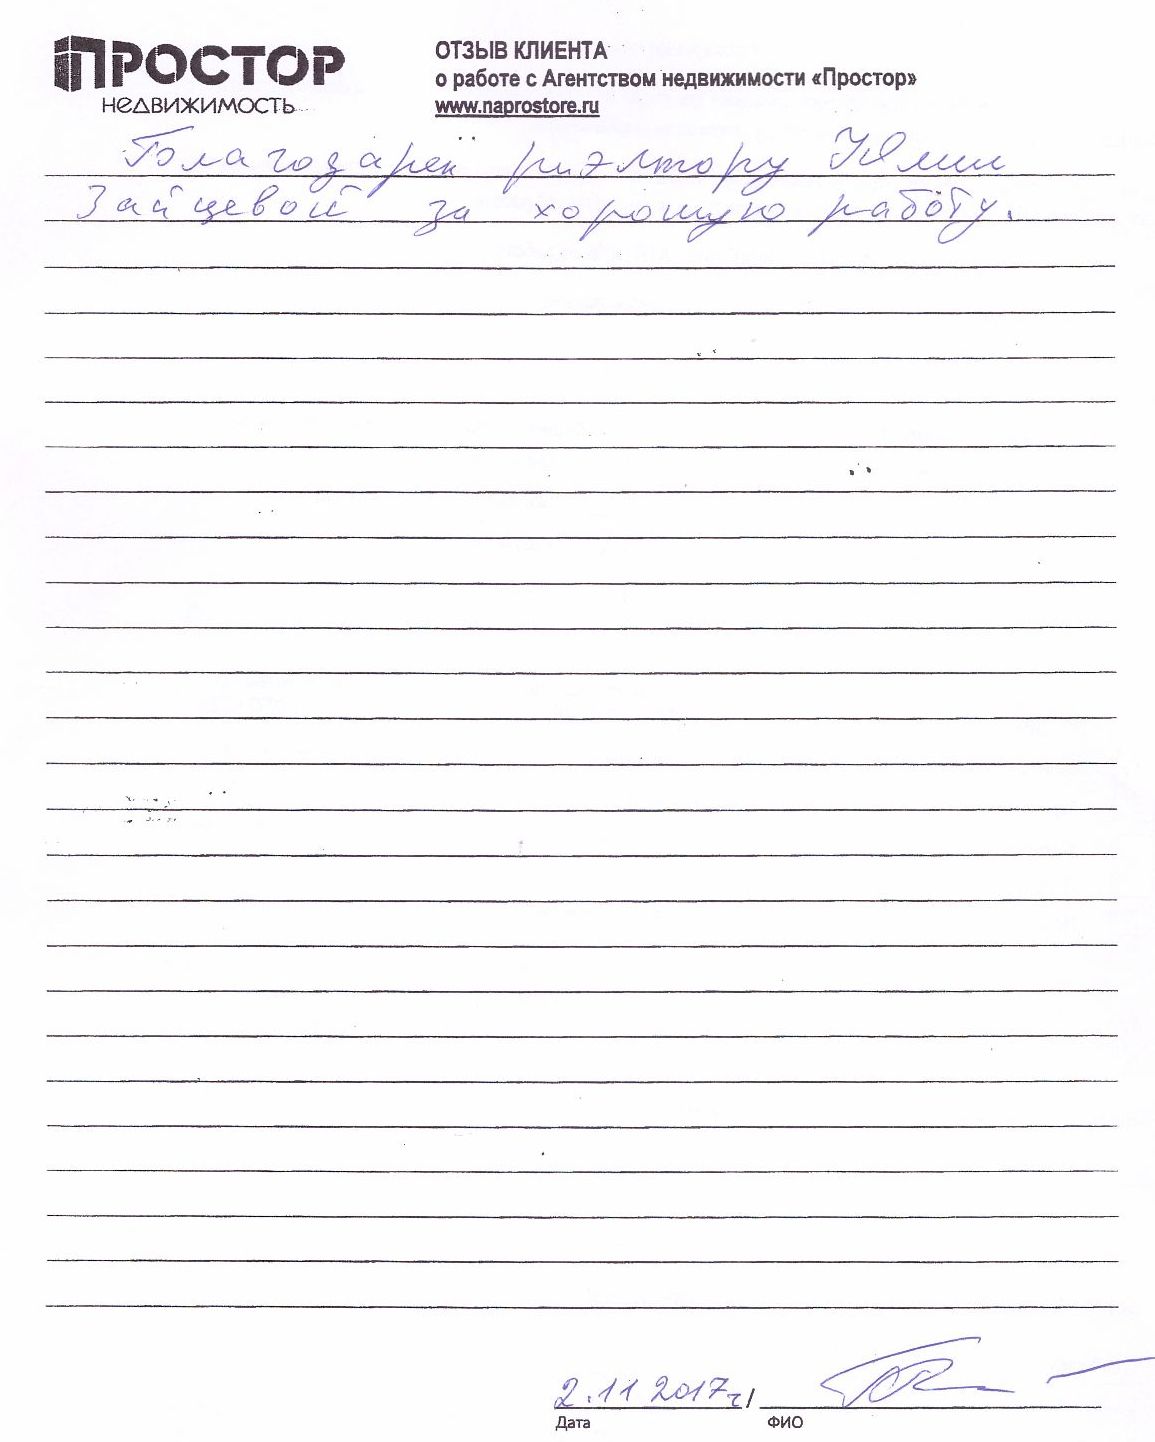 ПРОСТОР
НЕДВИЖИМОСТЬ
ОТЗЫВ КЛИЕНТА
о работе с Агентством недвижимости «Простор»
www.naprostore.ru
Благодарен риэлтору Юлии
Зайцевой за хорошую работу.
2.11 2017г/
Дата
ФИО